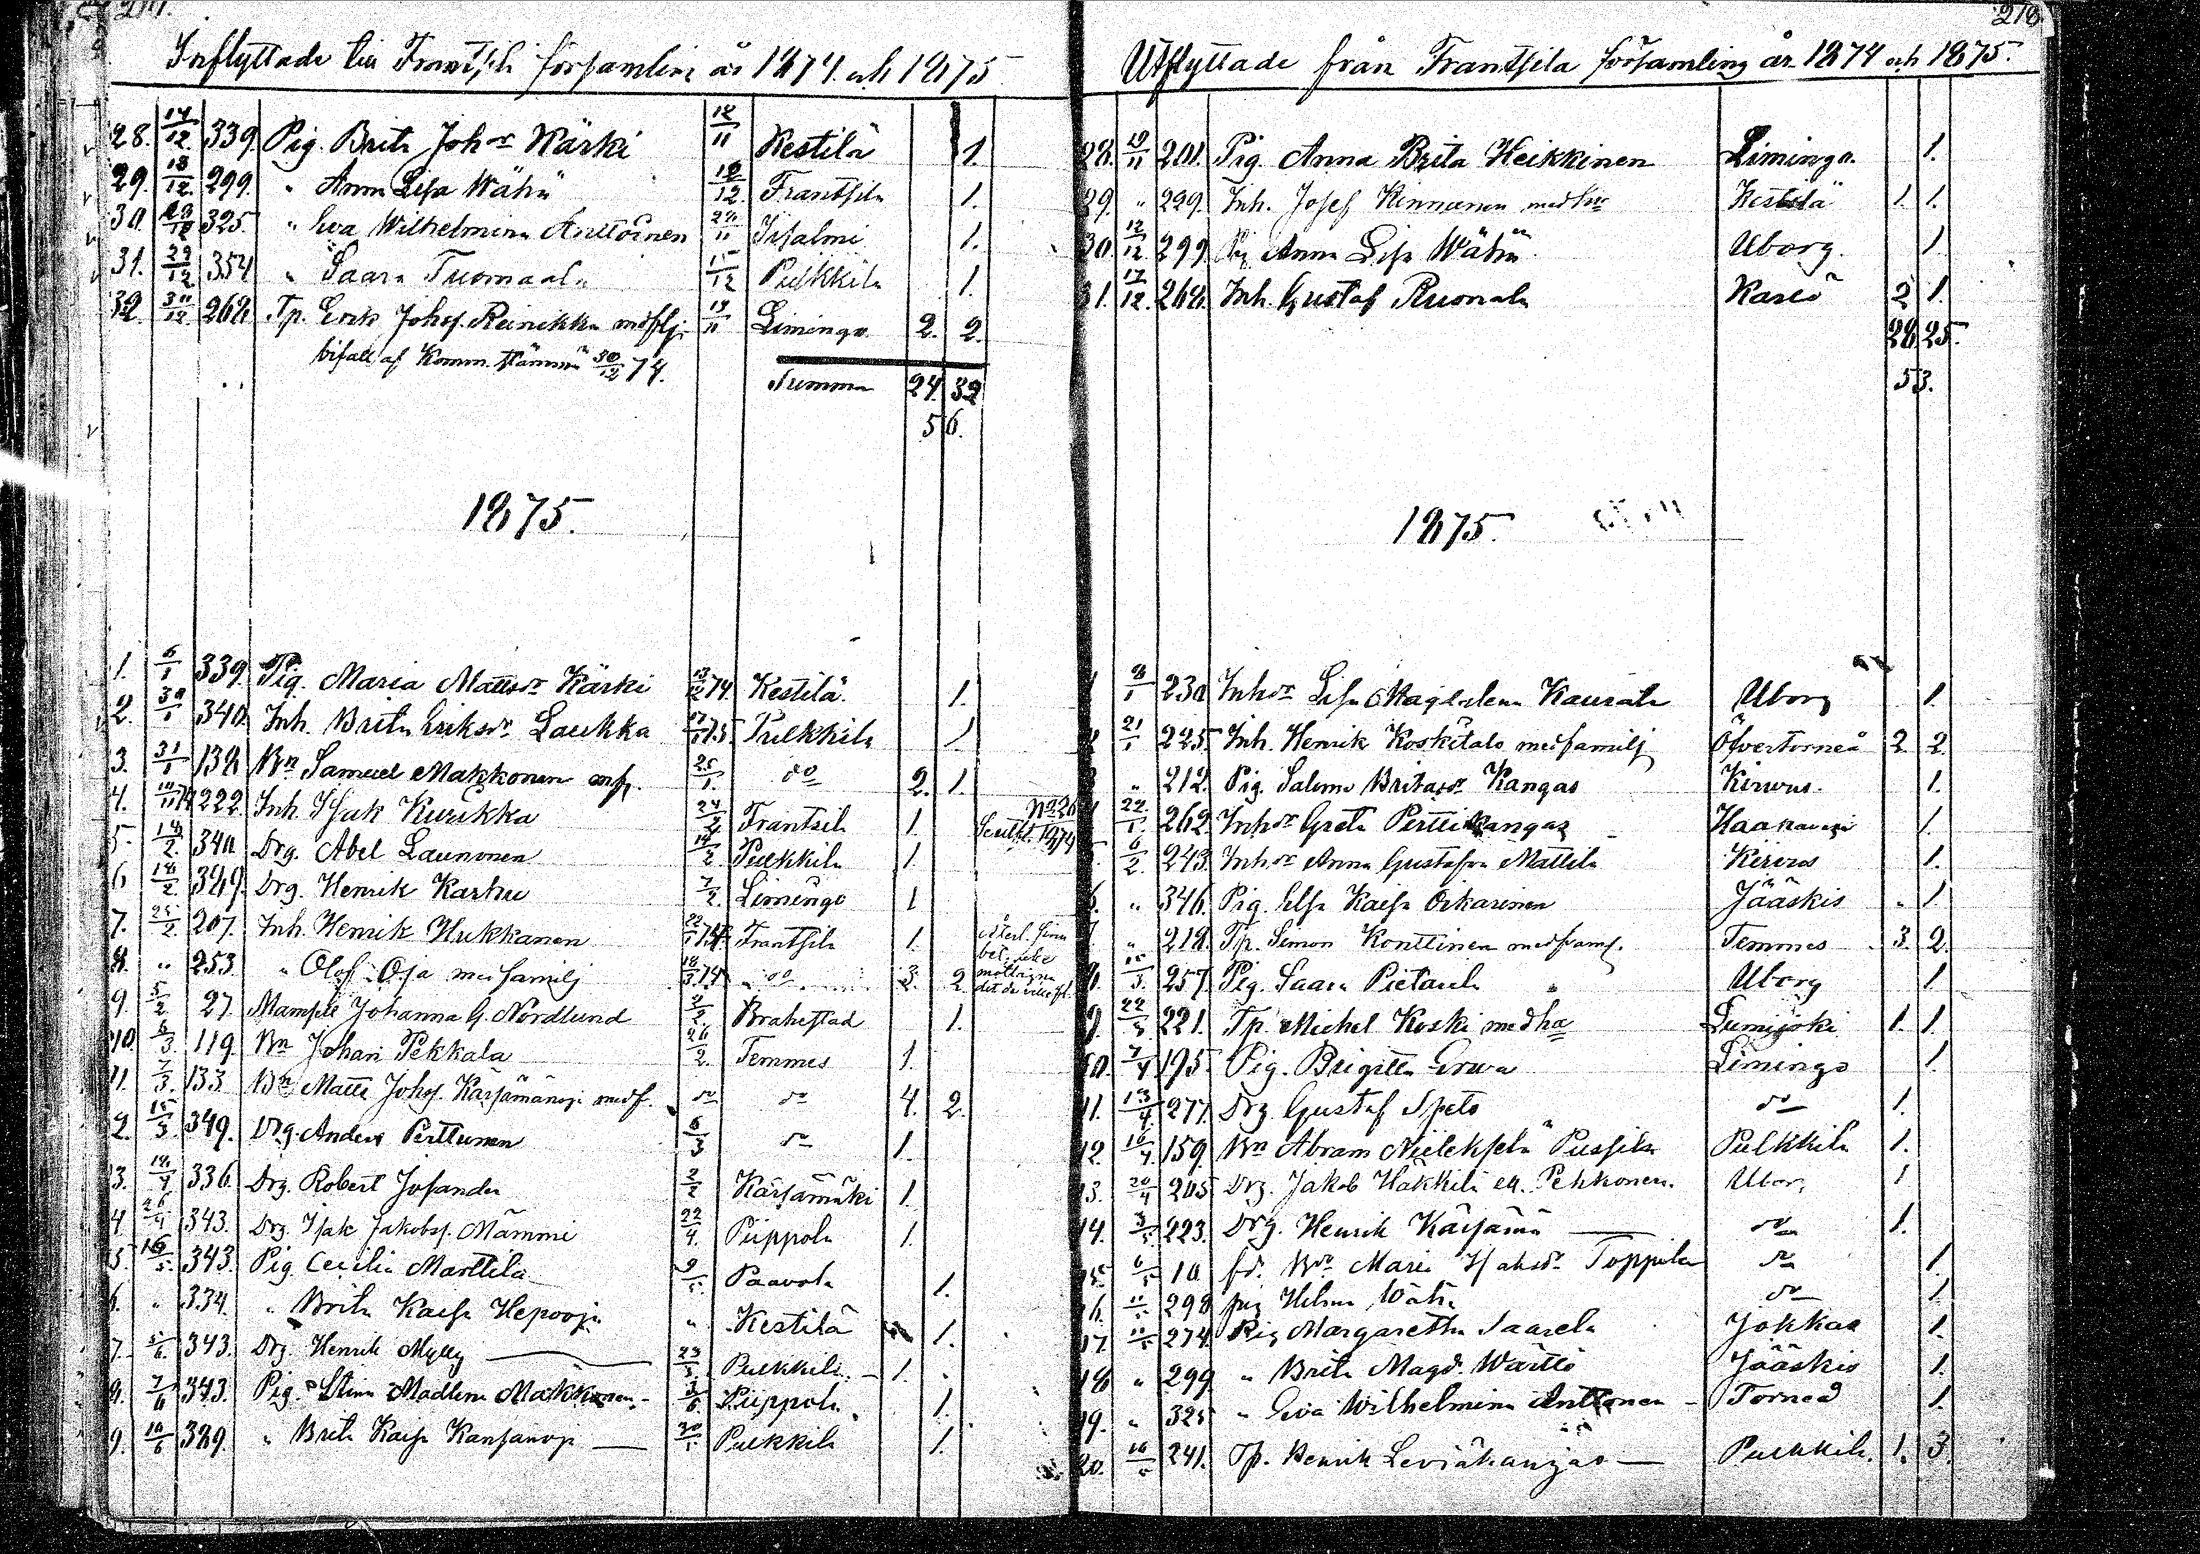 218.
Inflyttade till Frantsila församling år 1874 och 1875
28. 14/12. 339. Pig. Brita Johsdr Kärki 12/11 Kestilä 1.
29. 18/12 299. " Anna Lisa Wähä 12/12. Frantsila 1.
30. 325. " Eva Wilhelmina Anttoinen 11 Isalmi 1.
31. 29/12 354 " Saara Tuomaala 15/12 Pulkkila 1.
32. 30/12. 262 Tp. Erik Johss. Reinikka 11 Limingo 2. 2.
bifall af Komm. Stämma 30/12 74.
Summa 24. 32
56.
1875.
1. 5/1 339. Pig. Maria Mattsdr Kärki 13/12 74. Kestilä 1.
2. 30/1 340. Inh. Brita Eriksdr Laukka 75. Pulkkila 1
3. 31/1 132 Bn Samuel Makkonen 25/1. do 2. 1.
4. 222. Inh. Isak Kurikka 24/2 Frantsila 1. No 26
5. 14/2. 340 Drg. Abel Launonen 14/2 Pulkkila 1.
6 14/2. 349. Drg. Henrik Karhu 7/2. Limingo 1
7. 25/2. 207. Inh. Henrik Hukkanen Frantsila 1.
8. " 253. " Olof Oja med familj 18/3 74 do 3. 2.
9. 5/2. 27. Mamsell Johanna G. Nordlund 2/2. Brahestad 1.
10. 6/3. 119. Bn Johan Pekkala 26/2. Temmes 1.
11. 7/3. 133. Bn Matts Johss. Kärsämänoja med f. do do 4. 2.
2. 15/3. 349. Drg. Anders Perttunen 6/3 do 1.
3. 14/4 336. Drg. Robert Josander 2/2 Kärsämäki 1.
4 26/4 343. Drg. Isak Jakobss. Mämmi 22/4. Piippola 1.
5. 16/5. 343. Pig. Cecilia Marttila 9/5. Paavola 1.
6. " 334. " Brita Kaisa Hepooja " Kestilä 1.
7. 5/6. 343. Drg. Henrik Mylly 23/5. Pulkkila 1.
8. 7/6 343. Pig. Stina Madlena Makkonen 3/6. Piippola 1.
9. 10/6 329. " Brita Kaisa Kansanoja 30/5 Pulkkila 1.
Utflyttade från Frantsila församling år 1874 och 1875.
28. 10/11 201. Pig. Anna Brita Heikkinen Limingo. 1.
29. " 299. Inh. Josef Kinnunen med hu Kestilä 1. 1.
30. 12/12 299. Pig Anna Lisa Wähä Uborg. 1.
31. 17/12. 264. Inh. Gustaf Ruonala Karlö 2 1.
28 25.
53.
1875.
1 8/1 230 Inhdr Lisa Magdalena Kaurala Uborg 1.
2 21/1 225. Inh. Henrik Koskitalo med familj Öfvertorneå 2. 2.
3 " 212. Pig. Salema Britasdr Kangas Kervus. 1.
22/1. 262. Inhdr Greta Perttikangas Haakanegi 1.
6/2. 243. Inhdr Anna Gustafsdr Mattila Kervus 1.
6. " 346. Pig. Elsa Kaisa Oikarinen Jääskis " 1
7 " 218. Tp. Simon Konttinen med famf. Temmes 3. 2.
8. 15/3. 257. Pig. Saara Pietarila Uborg 1
9. 22/3 221. Tp. Michel Koski med hu Lumijoki 1. 1.
10. 7/4 195. Pig. Brigitta Erva Limingo 1.
11. 13/4 277. Drg Gustaf Speto do 1.
12. 16/4 159. Bn Abram Nielekselä Pussila Pulkkila 1.
13. 20/4 205 Drg. Jakob Häkkilä ell. Pehkonen. Uborg 1
14. 3/5 223. Drg. Henrik Kärsämä do 1.
15. 6/5 10 fd. Bdr Maria Isaksdr Toppila do 1
16. 11/5 298 pig Helena Wähä do 1
17. 11/5 274. Pig Margaretha Saarela Jokkas 1.
18 " 299 " Brita Magd. Wärttö Jääskis 1.
19. " 325 " Eva Wilhelmina Anttonen Torneå 1.
20. 16/5 241. Tp. Henrik Leviäkangas Pulkkila. 1. 3.